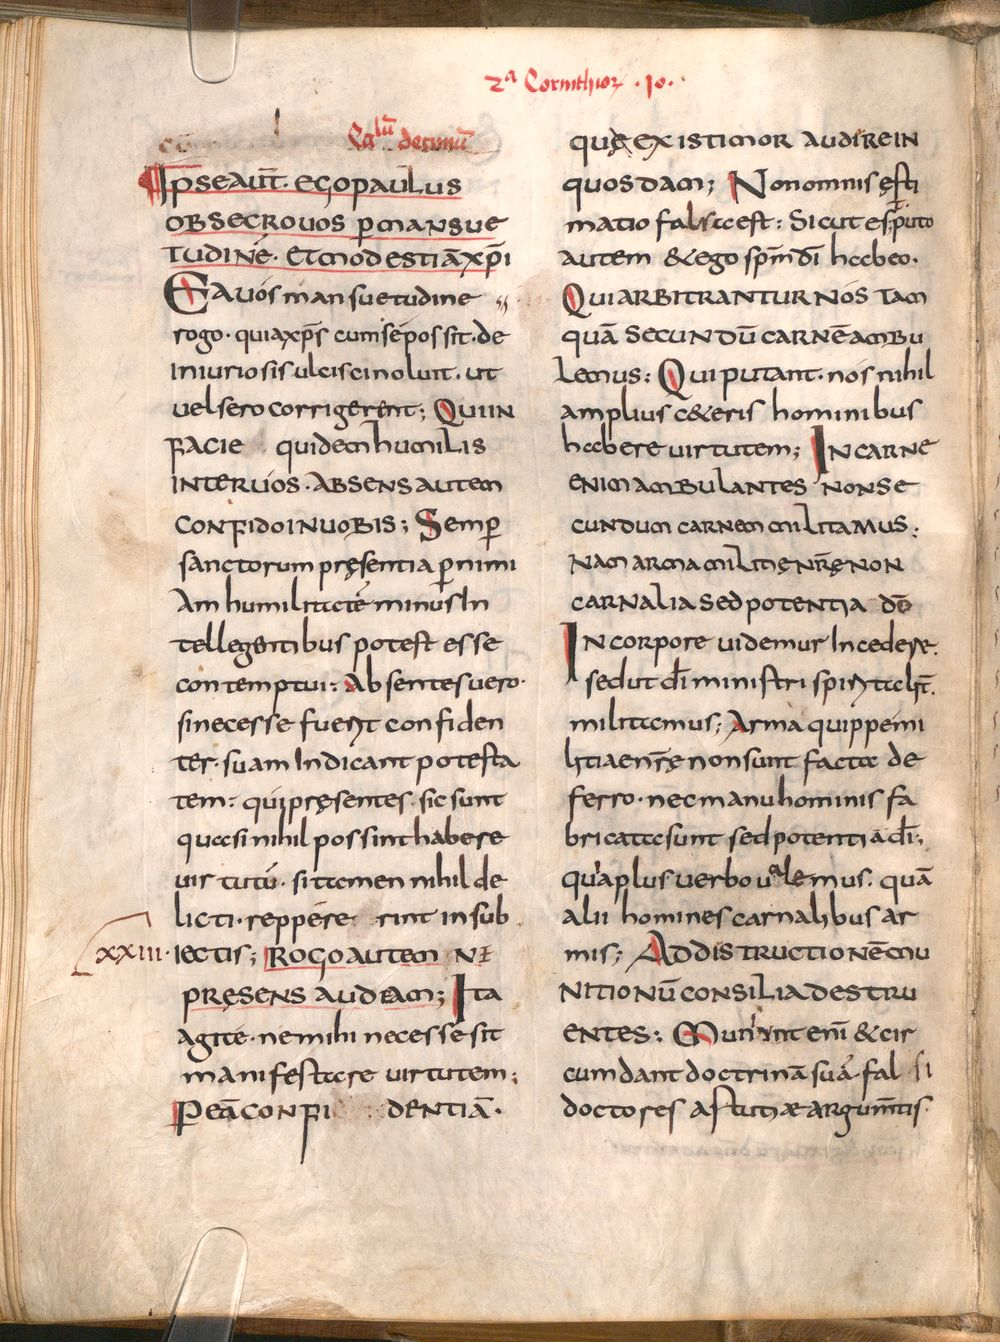 2ª Corinthioꝝ · 10 ·
Ca lũ decimũ
Ipse aut̃ · ego paulus
obsecro uos ꝑ mansue
tudinẽ · et modestiã xp̃i
Ea uos mansuetudine
rogo · quia xp̃s cum se possit · de
iniuriosis ulcisci noluit · ut
uel sero corrigerent ; Qui in
facie quidem humilis
inter uos · Absens autem
confido in uobis ; Semꝑ
sanctorum pręsentia ꝑ nimi
am humilitatẽ minus in
tellegentibus potest esse
contemptui : Absentes uero ·
si necesse fuerit confiden
ter · suam indicant potesta
tem : qui pręsentes sic sunt
quasi nihil possint habere
uirtutũ · si tamen nihil de
licti · reppere rint in sub
xxiii · iectis ; Rogo autem ne
pręsens audeam ; Ita
agite · ne mihi necesse sit
manifestare uirtutem ;
Per eã confi dentiã ·
quę existimor audire in
quosdam ; Non omnis ęsti
matio falsa est : Sicut es;puto
autem & ego sp̃m dĩ habeo ·
Qui arbitrantur nos tam
quã secundũ carnẽ ambu
lemus : Qui putant · nos nihil
amplius c&eris hominibus
habere uirtutem ; In carne
enim ambulantes non se
cundum carnem militamus :
Nam arma militię nr̃ę non
carnalia sed potentia dõ
In corpore uidemur incedere ·
sed ut dĩ ministri spiritalit̃ ·
militamus ; Arma quippe mi
litiae nr̃ę non sunt facta de
ferro · nec manu hominis fa
bricata sunt sed potentia dĩ ;
quia plus uerbo ualemus · quã
alii homines carnalibus ar
mis ; Ad distructionẽ mu
nitionũ consilia destru
entes : Muniunt enĩ & cir
cumdant doctrinã suã · falsi
doctores astutiæ argum̃tis ·